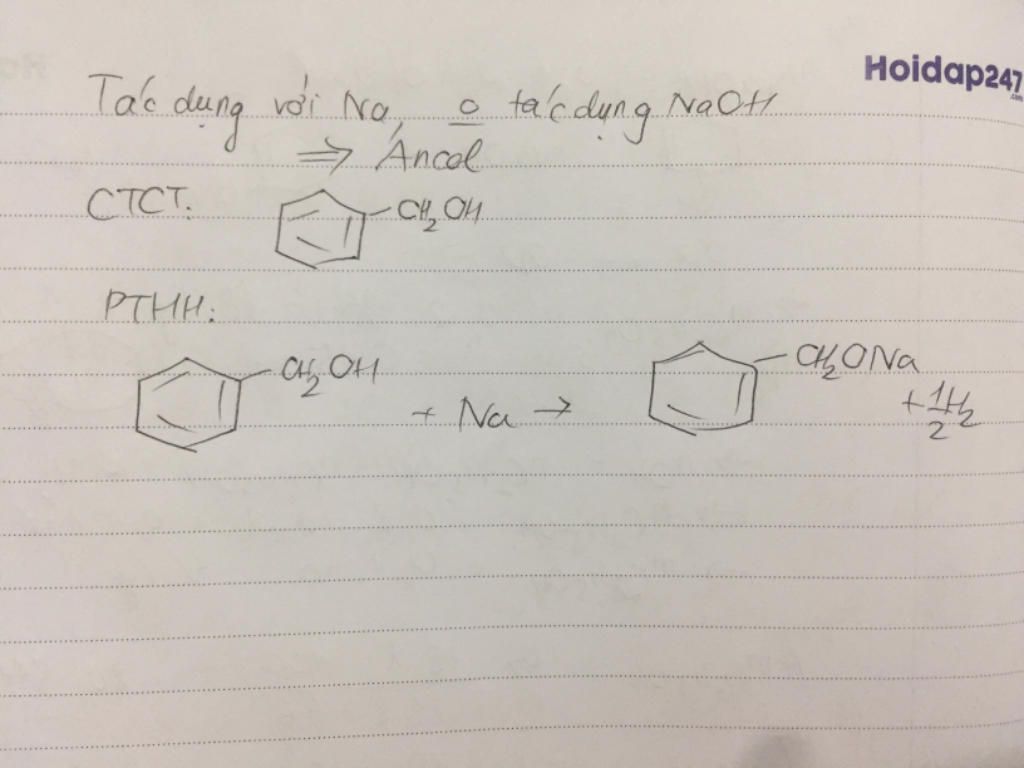 Hoidap247
.com
Tác dụng với Na, o tác dụng NaOH
=> Ancol
CTCT: CH2OH
PTHH:
CH2OH + Na → CH2ONa + 1/2 H2